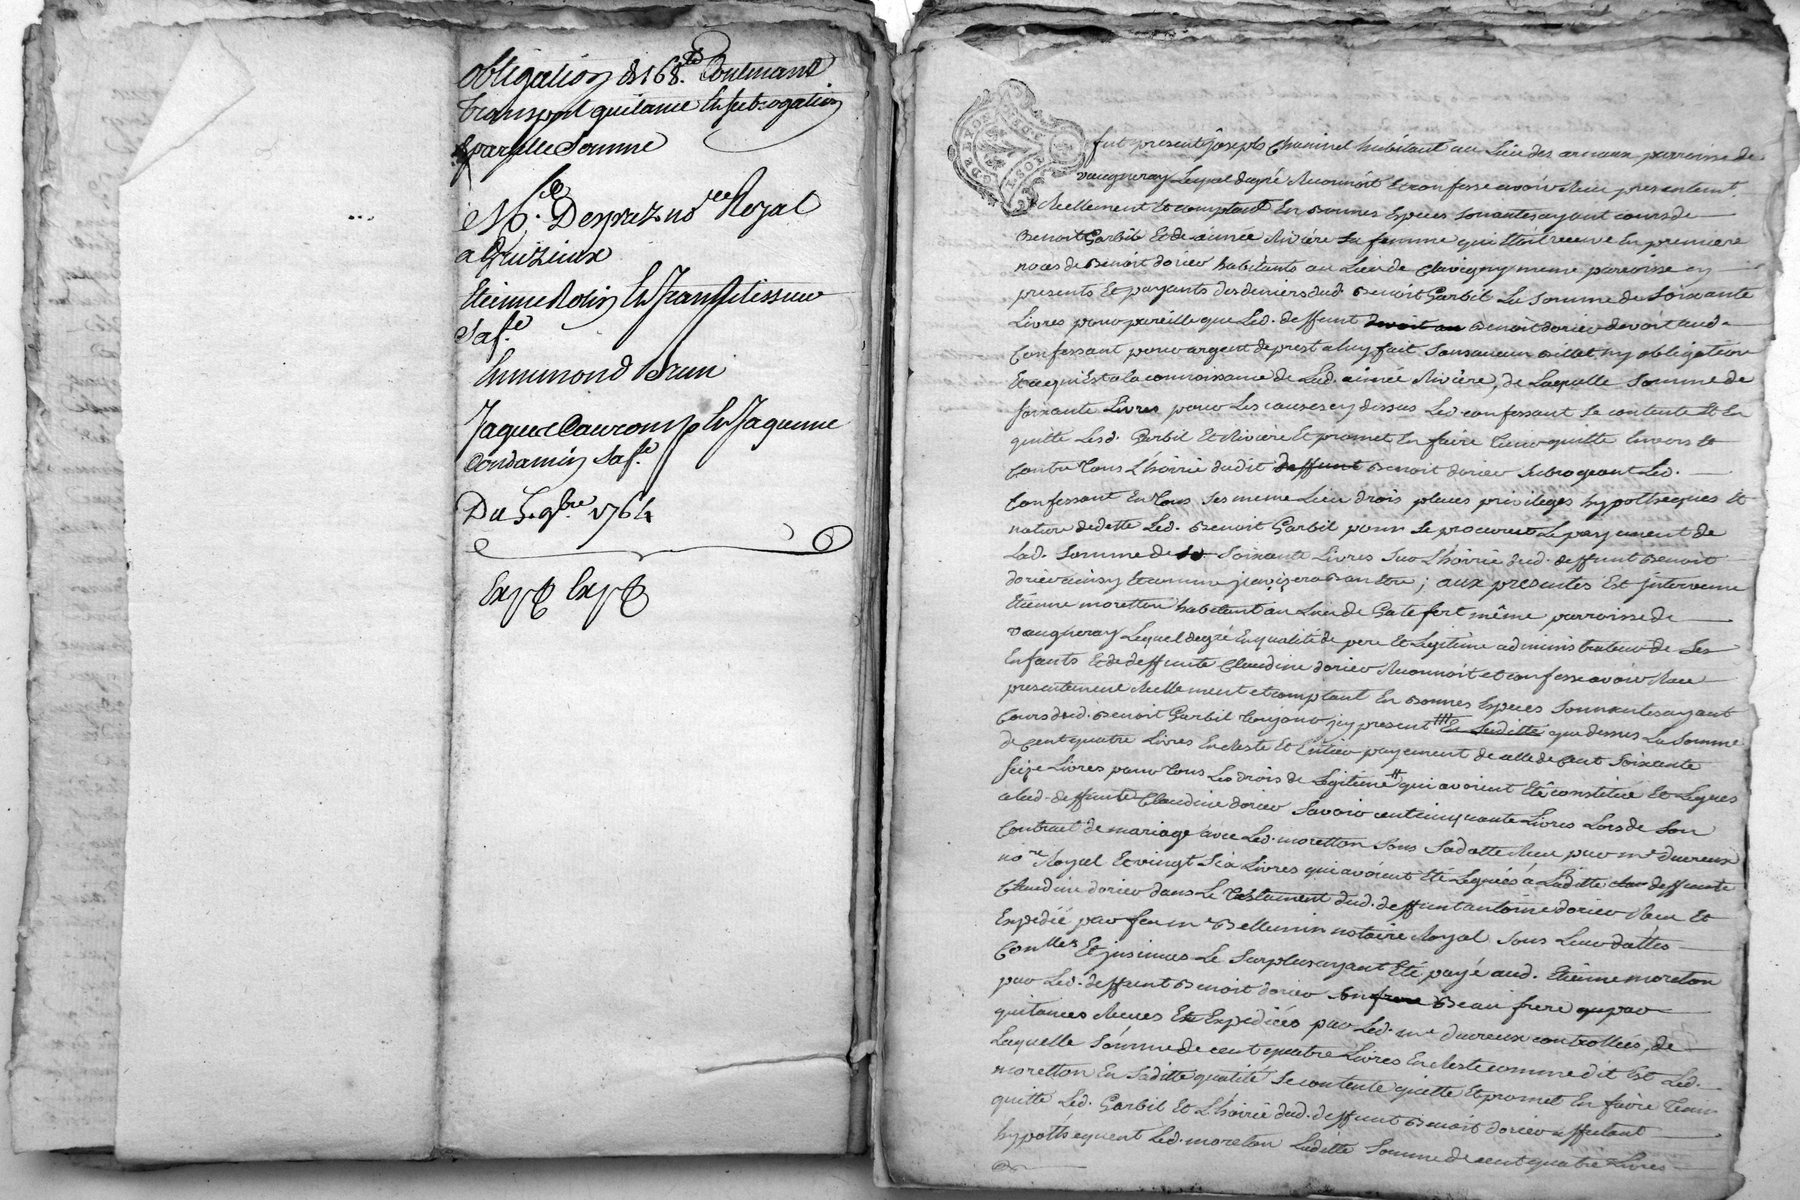 obligation de 168.ᵗᵗ Contenant
transport quitance et subrogation
de pareille Somme
Mᵉ. Desprez noʳᵉ Royal
a Grizieux
Etienne Rolin
Sa fᵉ.
Ennemond Brun
Jaques et Jaqueme
Condamin Sa fᵉ.
Du 5. 9bʳᵉ. 1764
Exp Exp
fut present joseph Chaninel habitant au Lieu des arnaux parroisse de
vaugneray Lequel de gré Reconnoit et confesse avoir Reçu presentement
Reellement et comptant En Bonnes Especes Sonnantes ayant cours de
Benoit Garbil Et de aimée Riviére Sa femme qui Etoit veuve En premiere
noces de Benoit dorier habitants au Lieu de Chavigny meme parroisse cy
presents Et payants des deniers dud. Benoit Garbil La Somme de Soixante
Livres pour pareille que Led. deffunt Benoit dorier devoit aud.
Confessant pour argent de prest a luy fait Sans aucun Billet ny obligation
Et ce qui Est a la connoissance de Lad. aimée Riviére, de Laquelle Somme de
soixante Livres pour Les causes cy dessus Led. confessant Se contente Et En
quitte Lesd. Garbil Et Riviere Et promet En faire Tenir quitte Envers Et
Contre Tous L'hoirie dudit deffunt Benoit dorier Subrogeant Led.
Confessant En Tous Ses meme Lieu drois places privileges hypotheques Et
nature de dette Led. Benoit Garbil pour Se procurer Le payement de
Lad. Somme de Soixante Livres Sur L'hoirie dud. deffunt Benoit
dorier ainsy Et comme il avisera Bon Etre; aux presentes Est Intervenu
Etienne moretton habitant au Lieu de Gatefert même parroisse de
vaugneray Lequel de gré En qualité de pere Et Legitime administrateur de Ses
Enfants Et de deffunte Claudine dorier Reconnoit et confesse avoir Reçu
presentement Reellement et comptant En Bonnes Especes Sonnantes ayant
Cours dud. Benoit Garbil Toujours icy present que dessus La Somme
de Cent quatre Livres En Reste Et Entier payement de celle de Cent Soixante
Seize Livres pour Tous Les drois de Legitime qui avoient Eté constitué Et Legués
a lad. deffunte Claudine dorier Savoir cent cinquante Livres Lors de Son
Contract de mariage avec Led. moretton Sous Sa datte Reçu par mᵉ ducreux
noʳᵉ Royal Et vingt Six Livres qui avoient Eté Legués à Laditte deffunte
Claudine dorier dans Le Testament dud. deffunt antoine dorier Reçu Et
Expedié par feu mᵉ Bellemin notaire Royal Sous Leur dattes
Conᵗˡˡᵉˢ Et jnsinués Le Surplus ayant Eté payé aud. Etienne moreton
par Led. deffunt Benoit dorier Son frere Beau frere qu par
quitances Reçues Et Expediées par Led. mᵉ ducreux controllées, de
Laquelle Somme de cent quatre Livres En Reste comme dit Est Led.
moretton En Saditte qualité Se contente quitte Et promet En faire Tenir
quitte Led. Garbil Et L'hoirie dud. deffunt Benoit dorier affectant
hypothequent Led. moreton Laditte Somme de cent quatre Livres